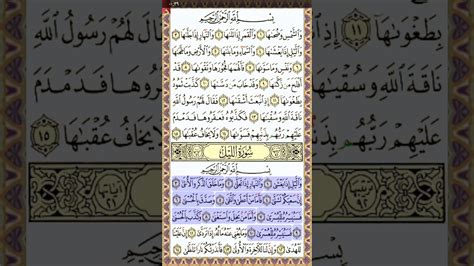 بِسْمِ ٱللَّهِ ٱلرَّحْمَٰنِ ٱلرَّحِيمِ
وَٱلشَّمْسِ وَضُحَىٰهَا ١ وَٱلْقَمَرِ إِذَا تَلَىٰهَا ٢ وَٱلنَّهَارِ إِذَا جَلَّىٰهَا ٣
وَٱلَّيْلِ إِذَا يَغْشَىٰهَا ٤ وَٱلسَّمَآءِ وَمَا بَنَىٰهَا ٥ وَٱلْأَرْضِ وَمَا طَحَىٰهَا
٦ وَنَفْسٍ وَمَا سَوَّىٰهَا ٧ فَأَلْهَمَهَا فُجُورَهَا وَتَقْوَىٰهَا ٨ قَدْ
أَفْلَحَ مَن زَكَّىٰهَا ٩ وَقَدْ خَابَ مَن دَسَّىٰهَا ١٠ كَذَّبَتْ ثَمُودُ
بِطَغْوَىٰهَآ ١١ إِذِ ٱنۢبَعَثَ أَشْقَىٰهَا ١٢ فَقَالَ لَهُمْ رَسُولُ ٱللَّهِ
نَاقَةَ ٱللَّهِ وَسُقْيَٰهَا ١٣ فَكَذَّبُوهُ فَعَقَرُوهَا فَدَمْدَمَ
عَلَيْهِمْ رَبُّهُم بِذَنۢبِهِمْ فَسَوَّىٰهَا ١٤ وَلَا يَخَافُ عُقْبَٰهَا ١٥
سُورَةُ اللَّيْلِ
بِسْمِ ٱللَّهِ ٱلرَّحْمَٰنِ ٱلرَّحِيمِ
وَٱلَّيْلِ إِذَا يَغْشَىٰ ١ وَٱلنَّهَارِ إِذَا تَجَلَّىٰ ٢ وَمَا خَلَقَ ٱلذَّكَرَ وَٱلْأُنثَىٰٓ ٣
إِنَّ سَعْيَكُمْ لَشَتَّىٰ ٤ فَأَمَّا مَنْ أَعْطَىٰ وَٱتَّقَىٰ ٥ وَصَدَّقَ بِٱلْحُسْنَىٰ ٦
فَسَنُيَسِّرُهُۥ لِلْيُسْرَىٰ ٧ وَأَمَّا مَنۢ بَخِلَ وَٱسْتَغْنَىٰ ٨ وَكَذَّبَ بِٱلْحُسْنَىٰ ٩
فَسَنُيَسِّرُهُۥ لِلْعُسْرَىٰ ١٠ وَمَا يُغْنِى عَنْهُ مَالُهُۥٓ إِذَا تَرَدَّىٰٓ ١١ إِنَّ عَلَيْنَا
لَلْهُدَىٰ ١٢ وَإِنَّ لَنَا لَلْءَاخِرَةَ وَٱلْأُولَىٰ ١٣ فَأَنذَرْتُكُمْ نَارًا تَلَظَّىٰ ١٤